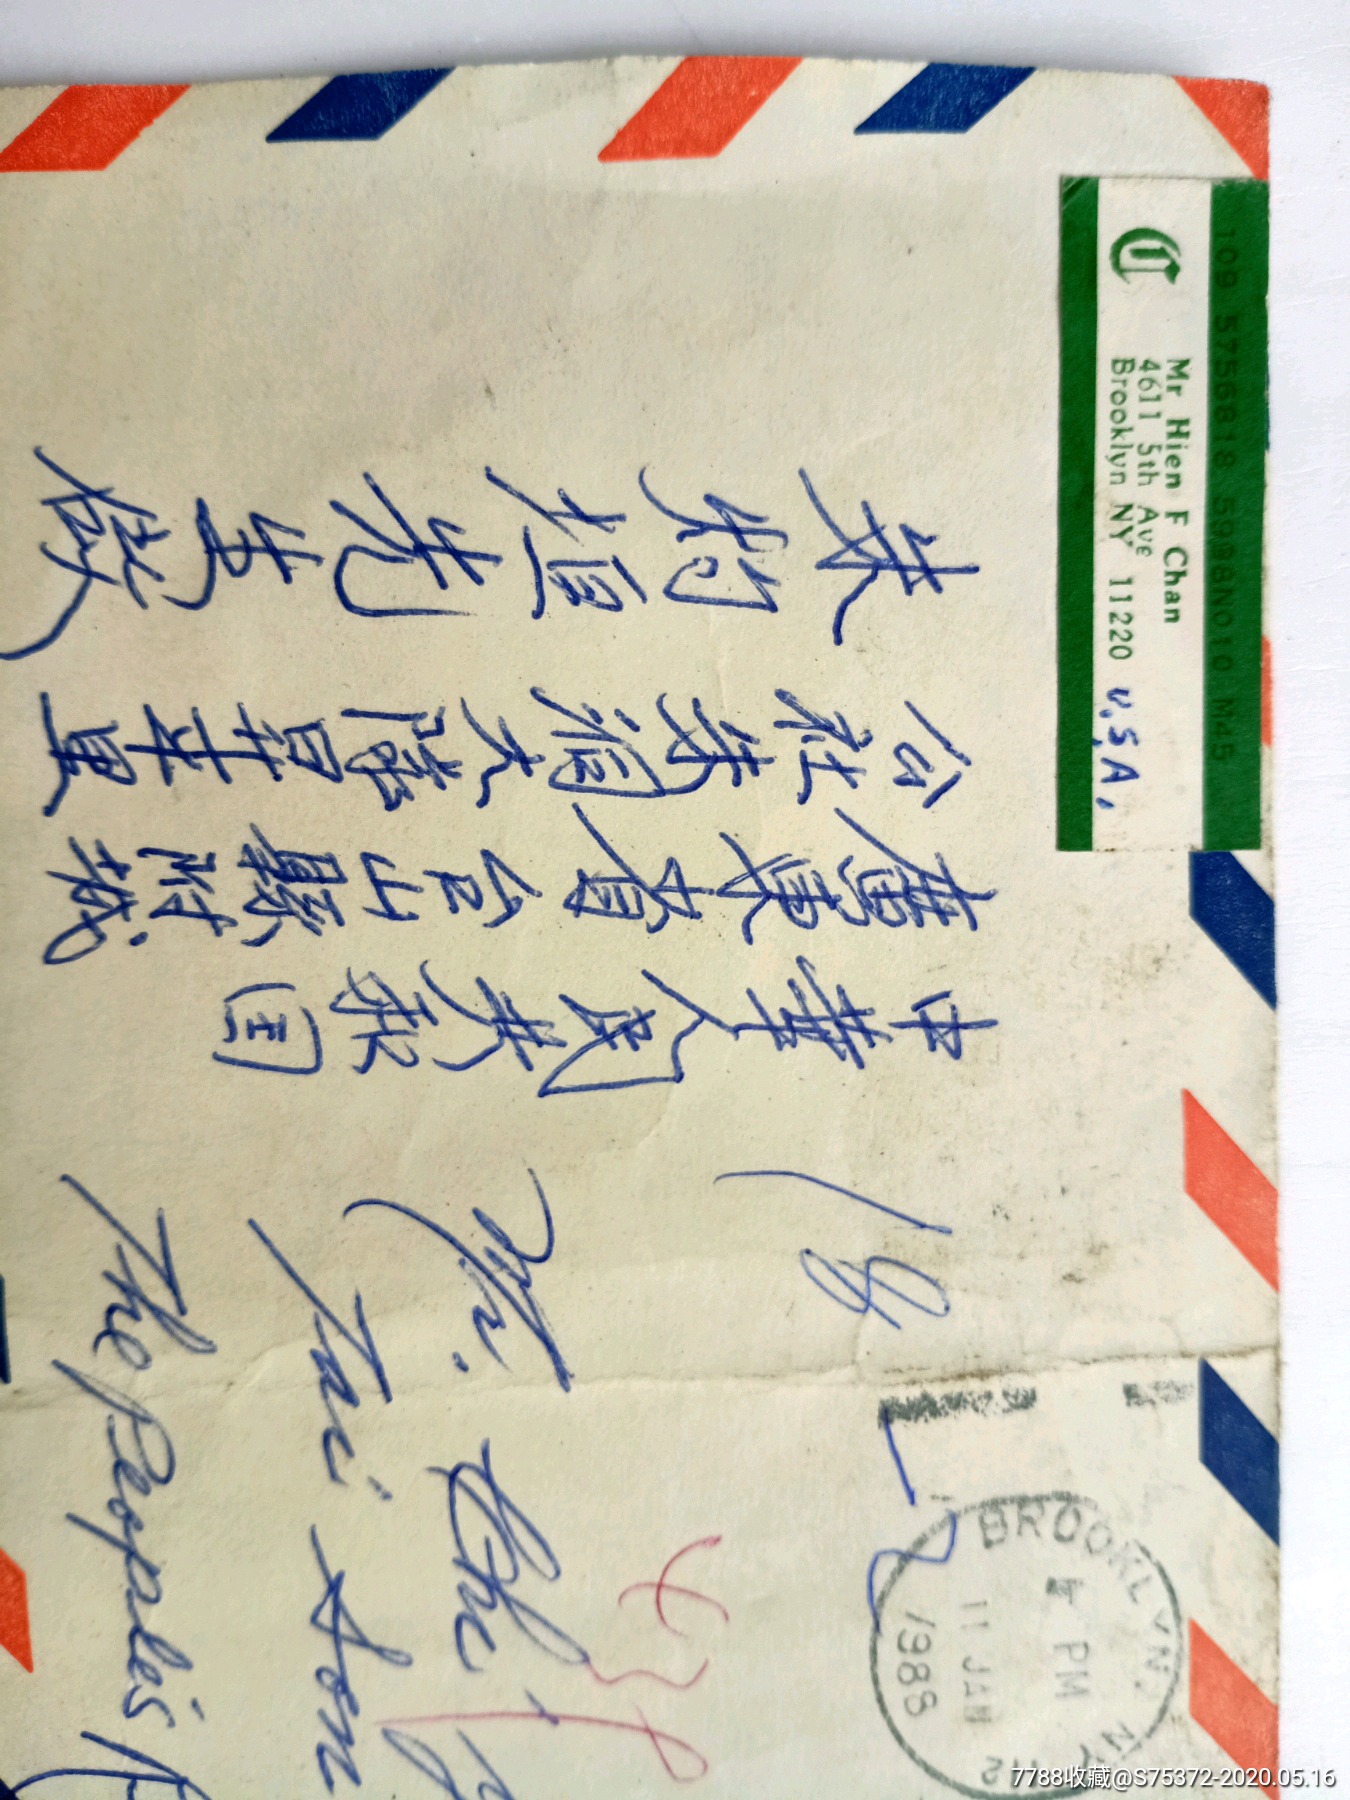 109 5756818 5998N010 M45
Mr Hien F Chan
4611 5th Ave
Brooklyn NY 11220 U.S.A.
BROOKLYN, NY
PM
11 JAN
1988
中華人民共和国
廣東省台山縣附城
公社洞大隊里
灼先生啟
18
Mr. Che
Tai Son
The People's R
7788收藏@S75372-2020.05.16